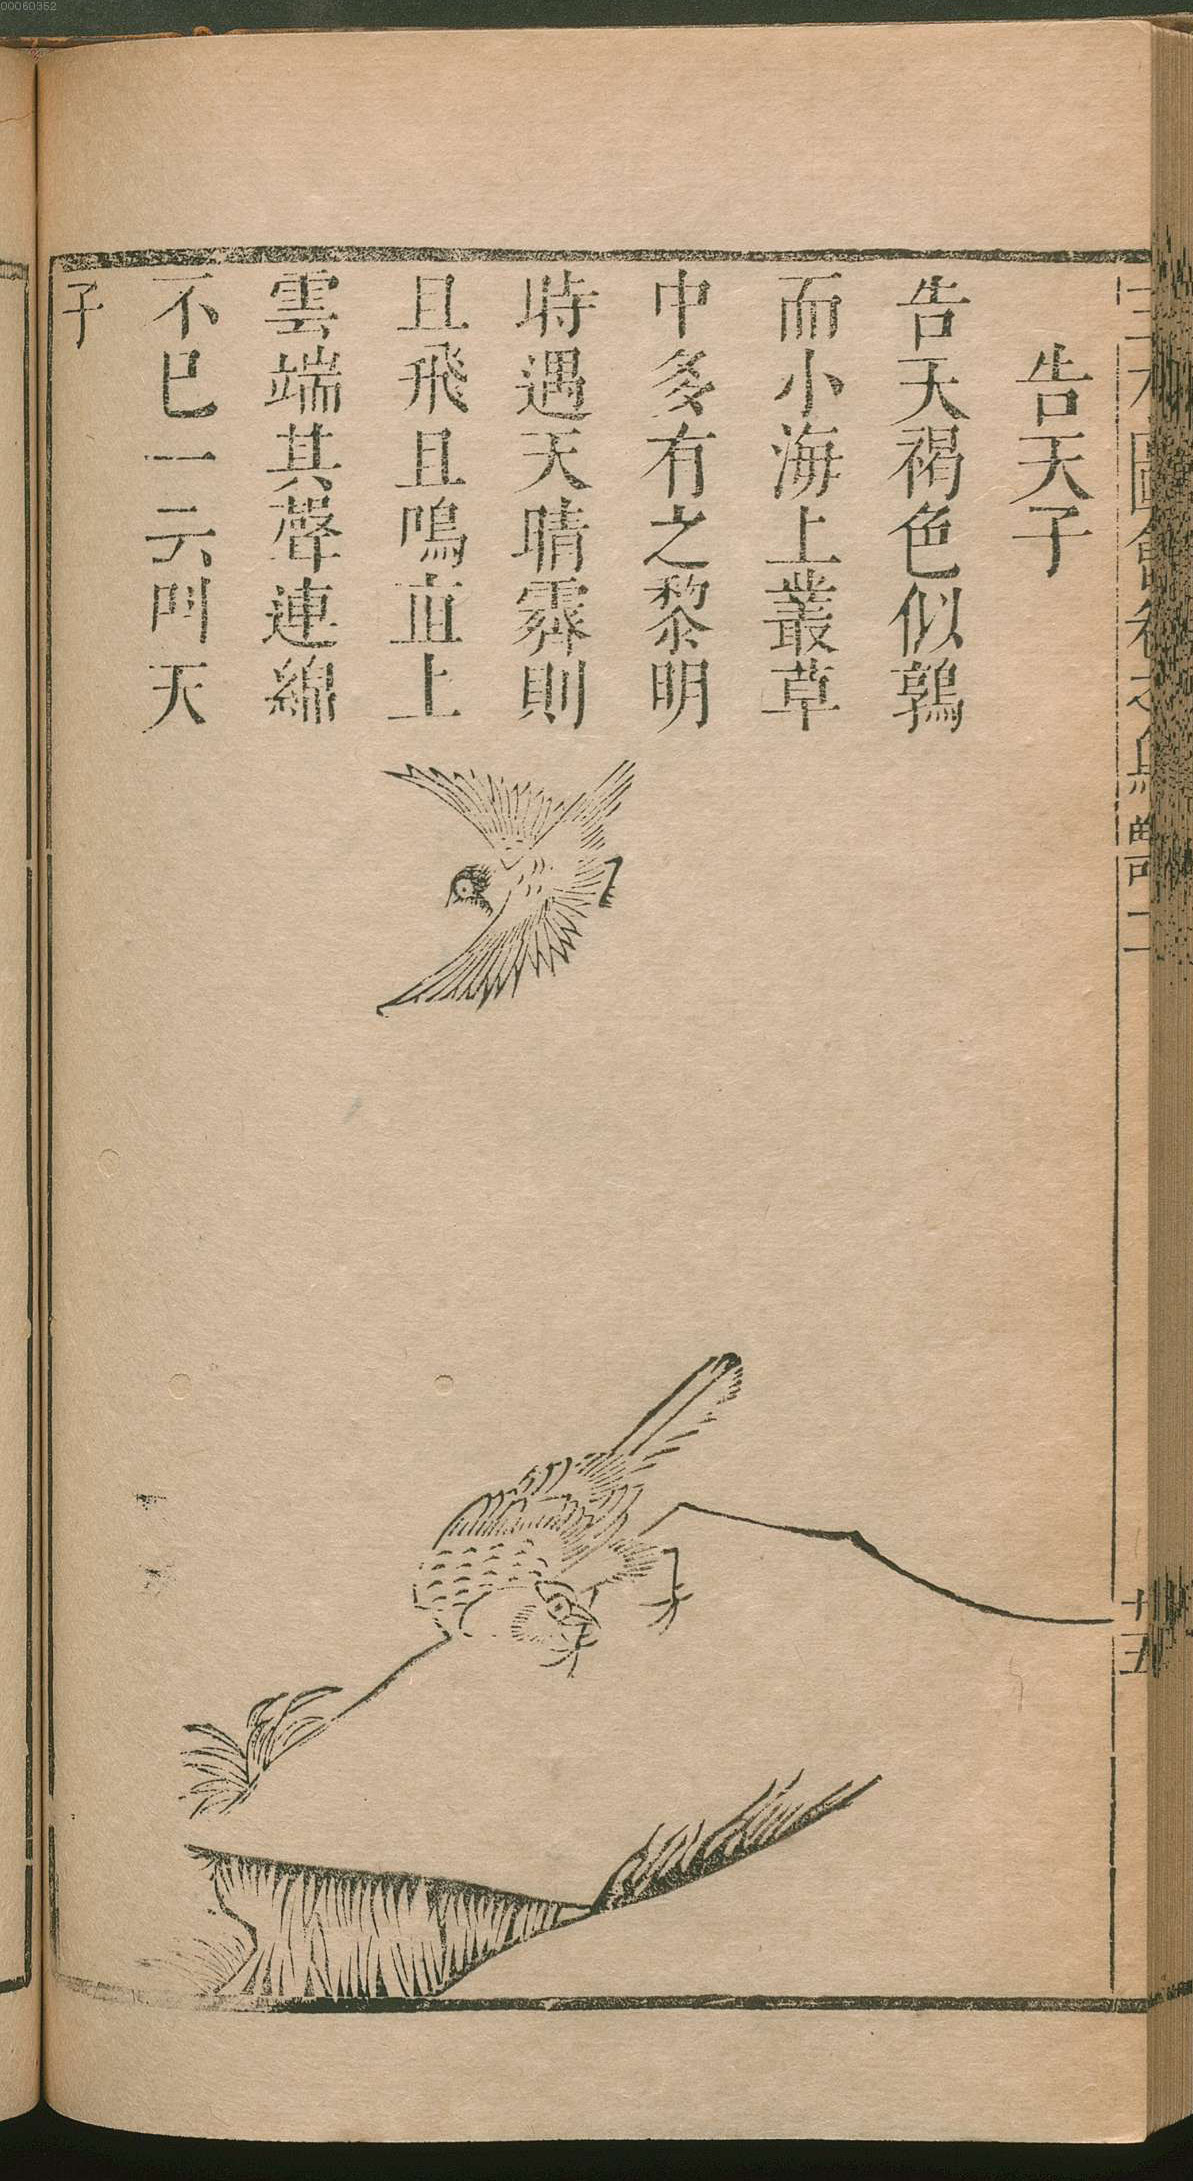 告天子
告天褐色似鶉
而小海上叢草
中多有之黎明
時遇天晴霽則
且飛且鳴直上
雲端其聲連綿
不已一云叫天
子
廿五
00060352